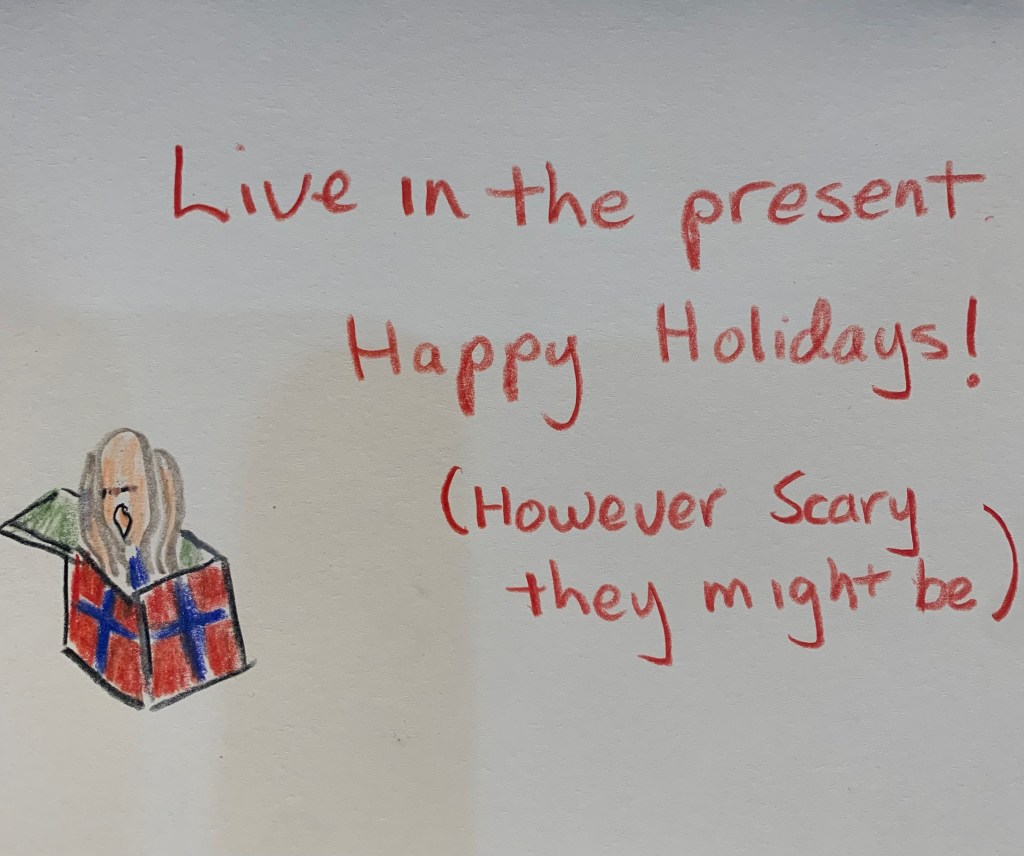 Live in the present.
Happy Holidays!
(However Scary
they might be)